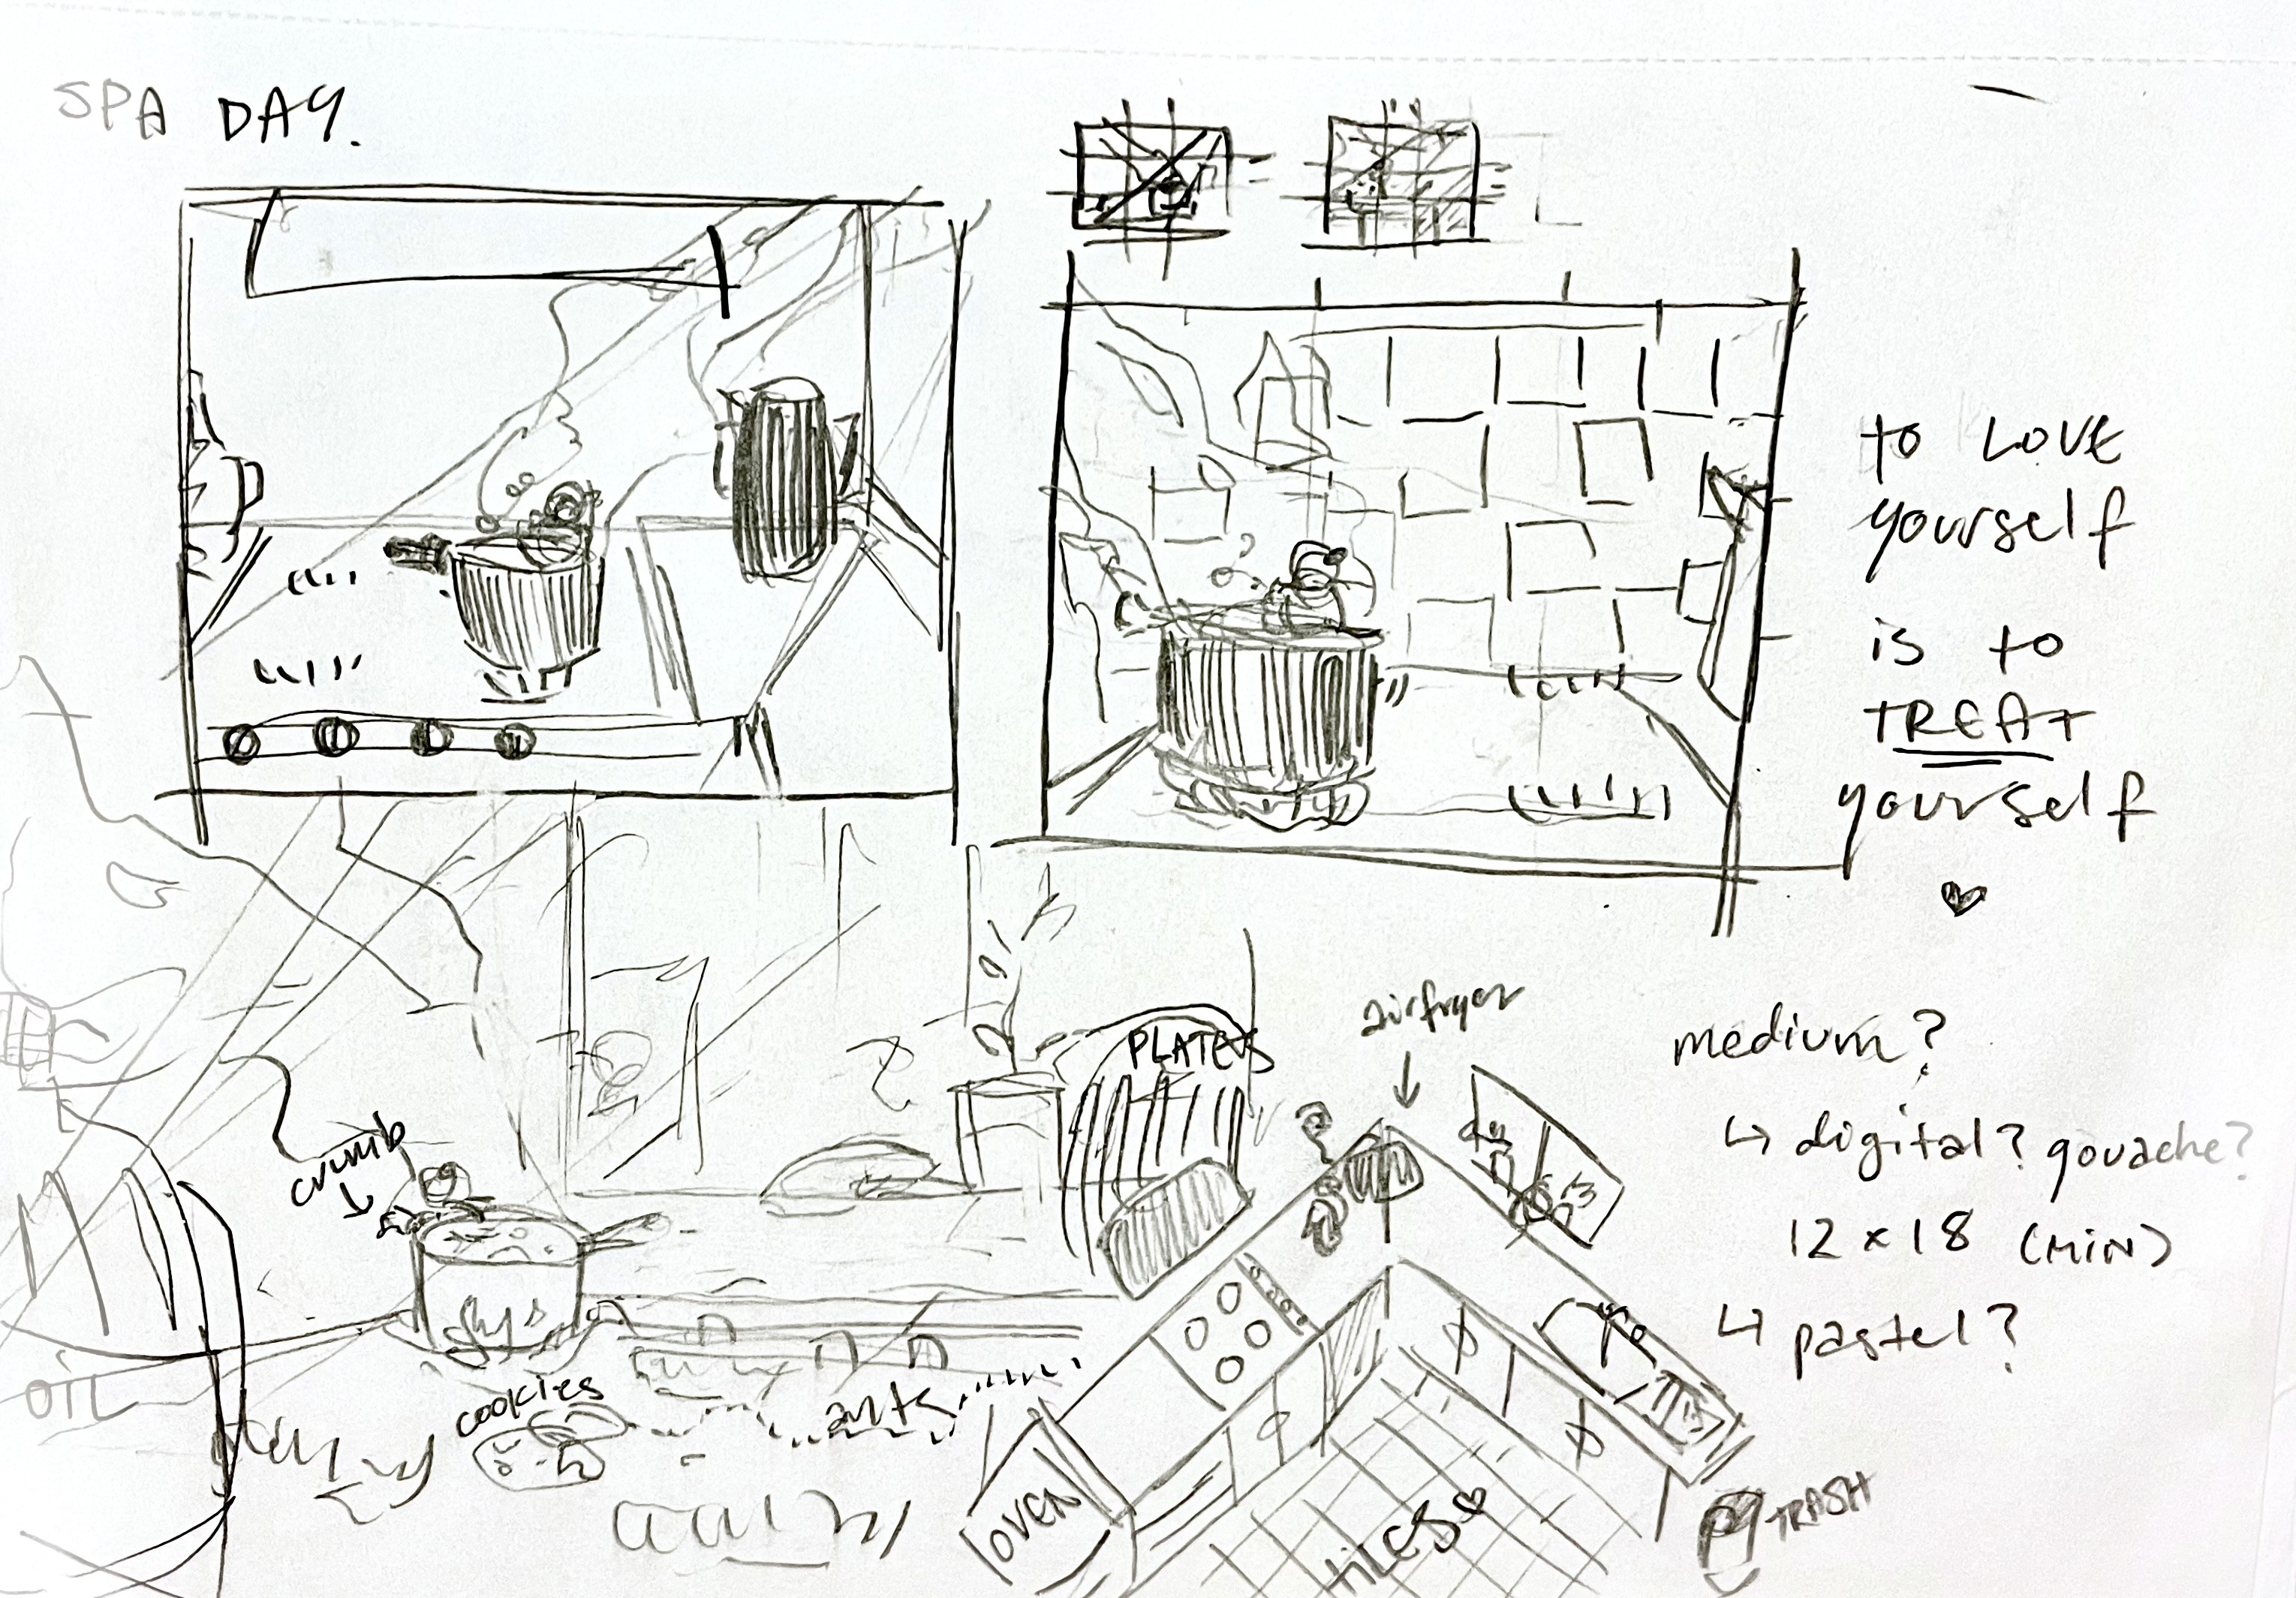 SPA DAY.
to LOVE
yourself
is to
TREAT
yourself
♥
airfryer
PLATES
medium?
↳ digital? gouache?
12 x 18 (MIN)
↳ pastel?
crumb
OIL
cookies
ants
OVEN
tiLES♥
TRASH